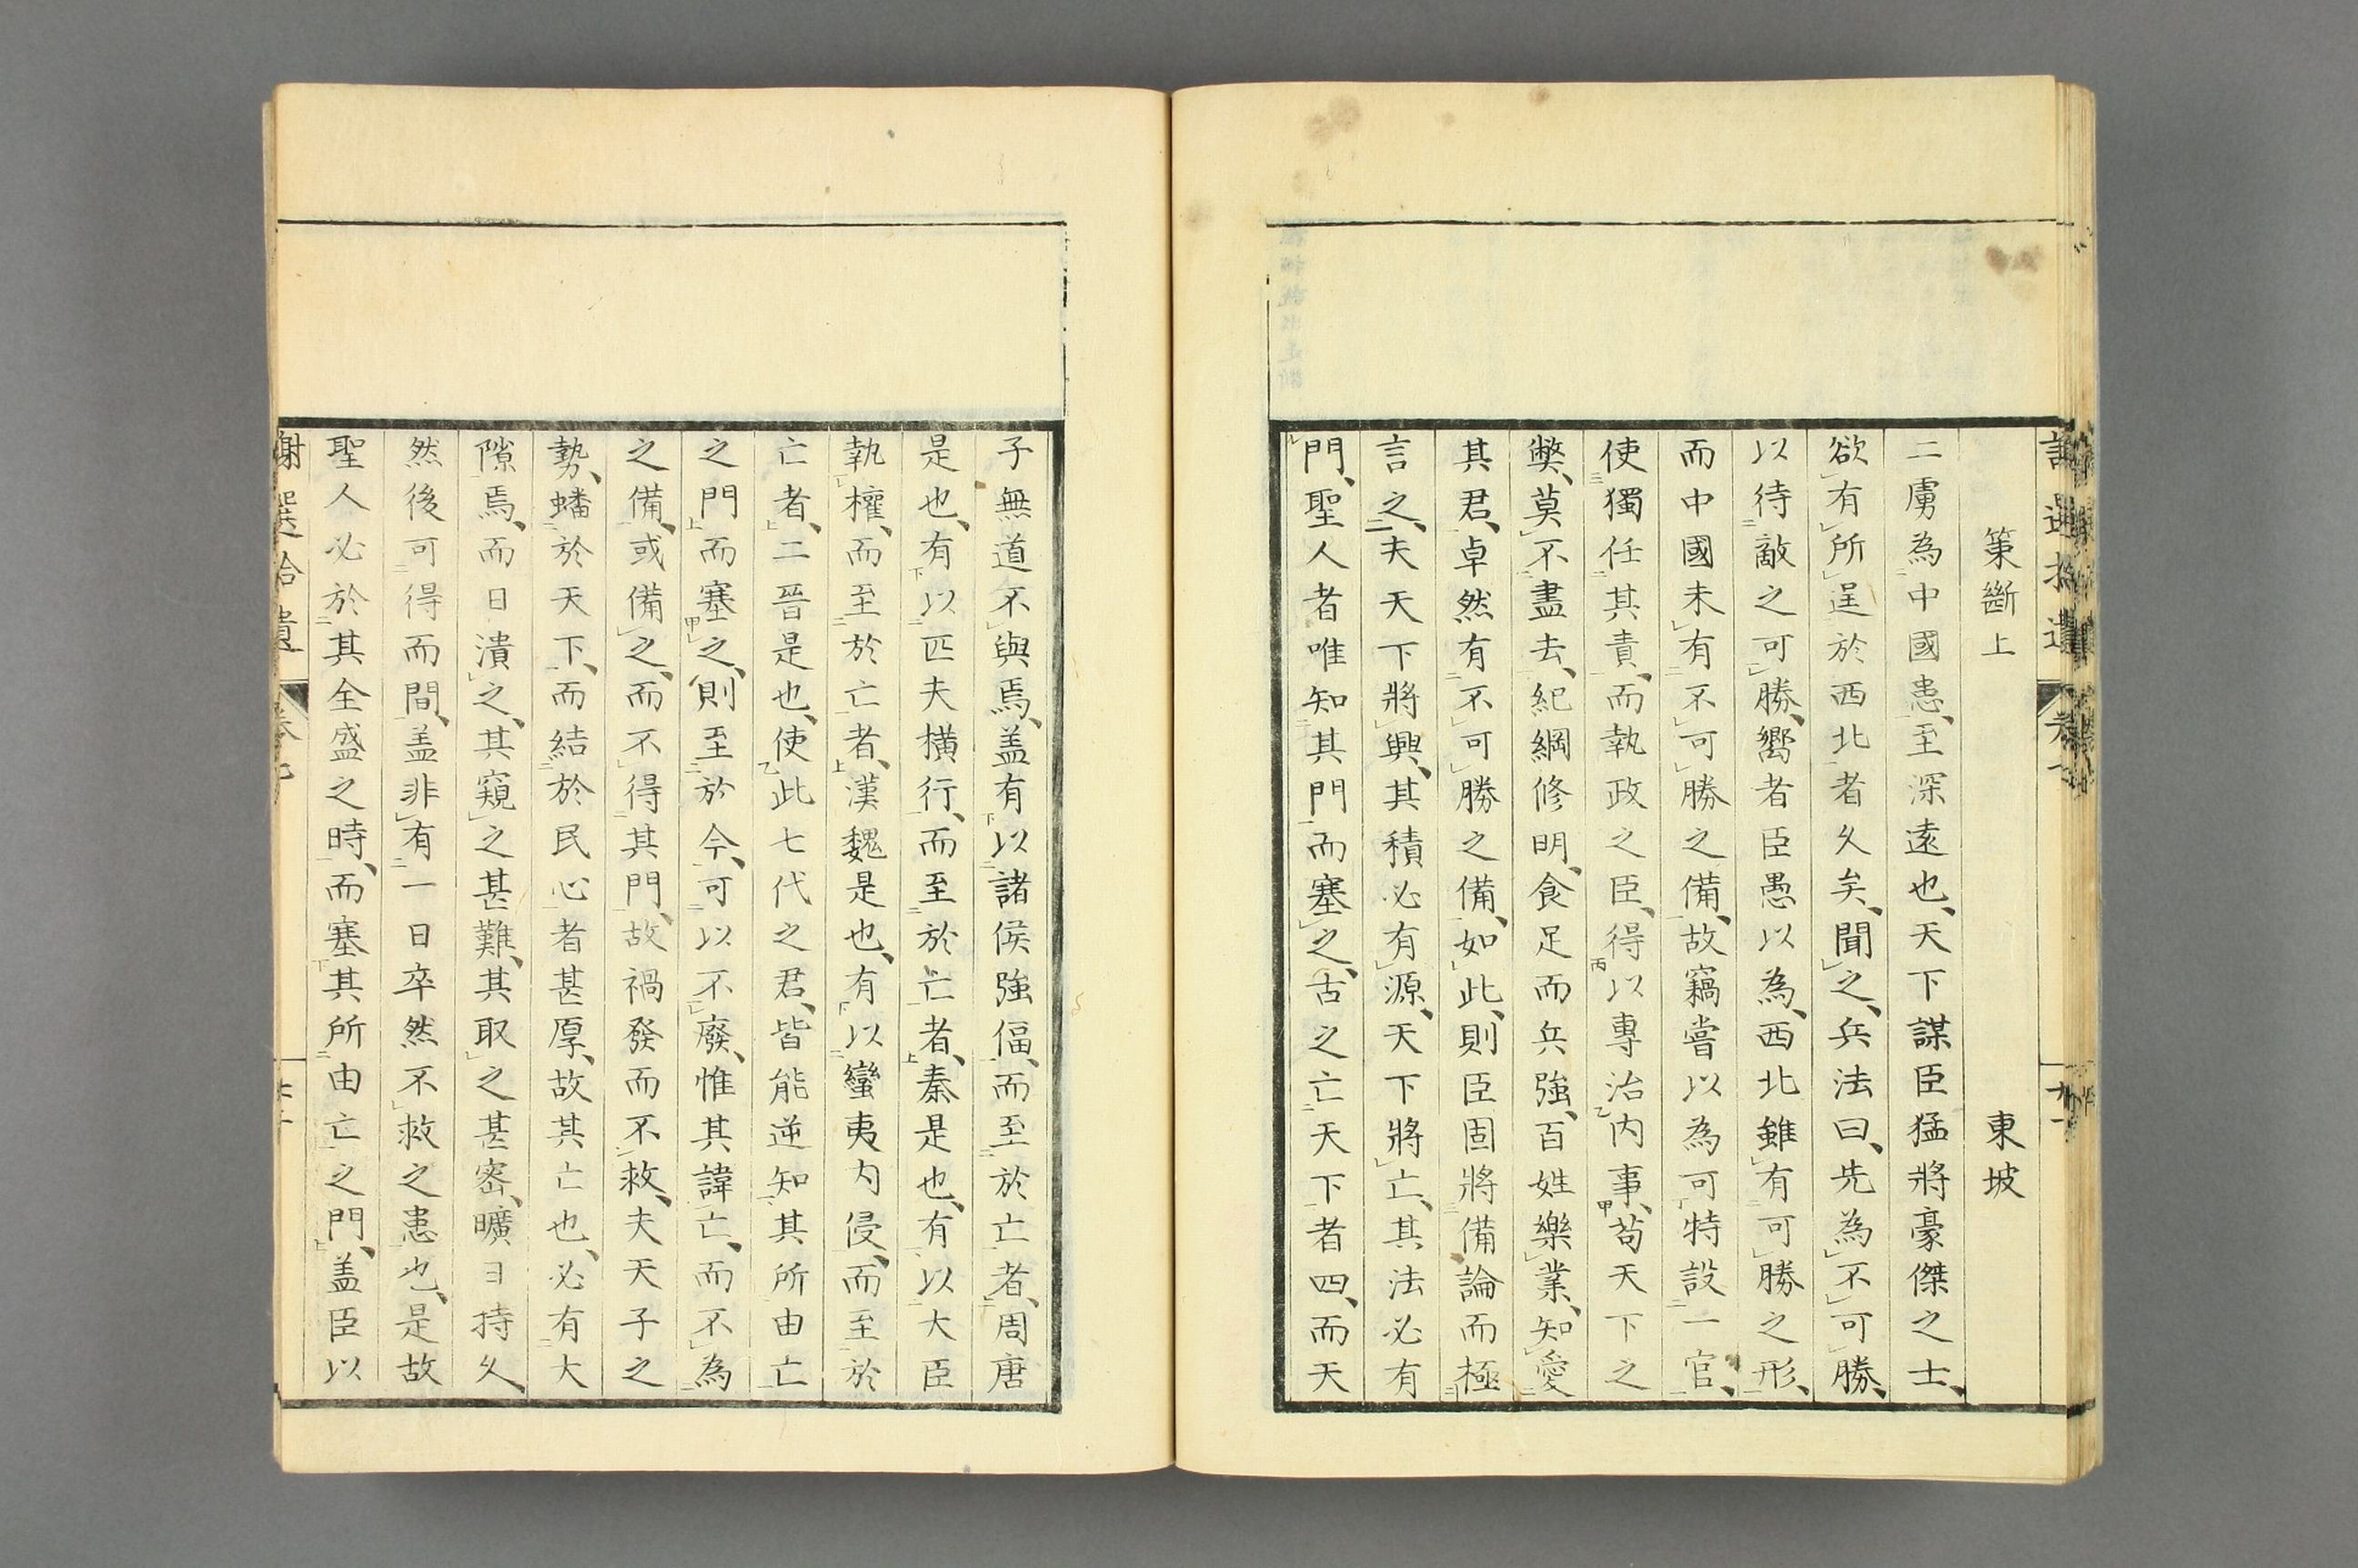 策斷上 東坡
二虜為中國患、至深遠也、天下謀臣猛將豪傑之士、
欲有所逞於西北者久矣、聞之、兵法曰、先為不可勝、
以待敵之可勝、嚮者臣愚以為、西北雖有可勝之形、
而中國未有不可勝之備、故竊嘗以為可特設一官、
使獨任其責、而執政之臣、得以專治內事、苟天下之
獘、莫不盡去、紀綱修明、食足而兵強、百姓樂業、知愛
其君、卓然有不可勝之備、如此、則臣固將備論而極
言之、夫天下將興、其積必有源、天下將亡、其法必有
門、聖人者唯知其門而塞之、古之亡天下者四、而天
子無道不與焉、盖有以諸侯強偪、而至於亡者、周唐
是也、有以匹夫橫行、而至於亡者、秦是也、有以大臣
執權、而至於亡者、漢魏是也、有以蠻夷内侵、而至於
亡者、二晉是也、使此七代之君、皆能逆知其所由亡
之門而塞之、則至於今、可以不廢、惟其諱亡、而不為
之備、或備之、而不得其門、故禍發而不救、夫天子之
勢、蟠於天下、而結於民心者甚厚、故其亡也、必有大
隙焉、而日潰之、其窺之甚難、其取之甚密、曠日持久、
然後可得而間、盖非有一日卒然不救之患也、是故
聖人必於其全盛之時、而塞其所由亡之門、盖臣以
謝選拾遺 卷七